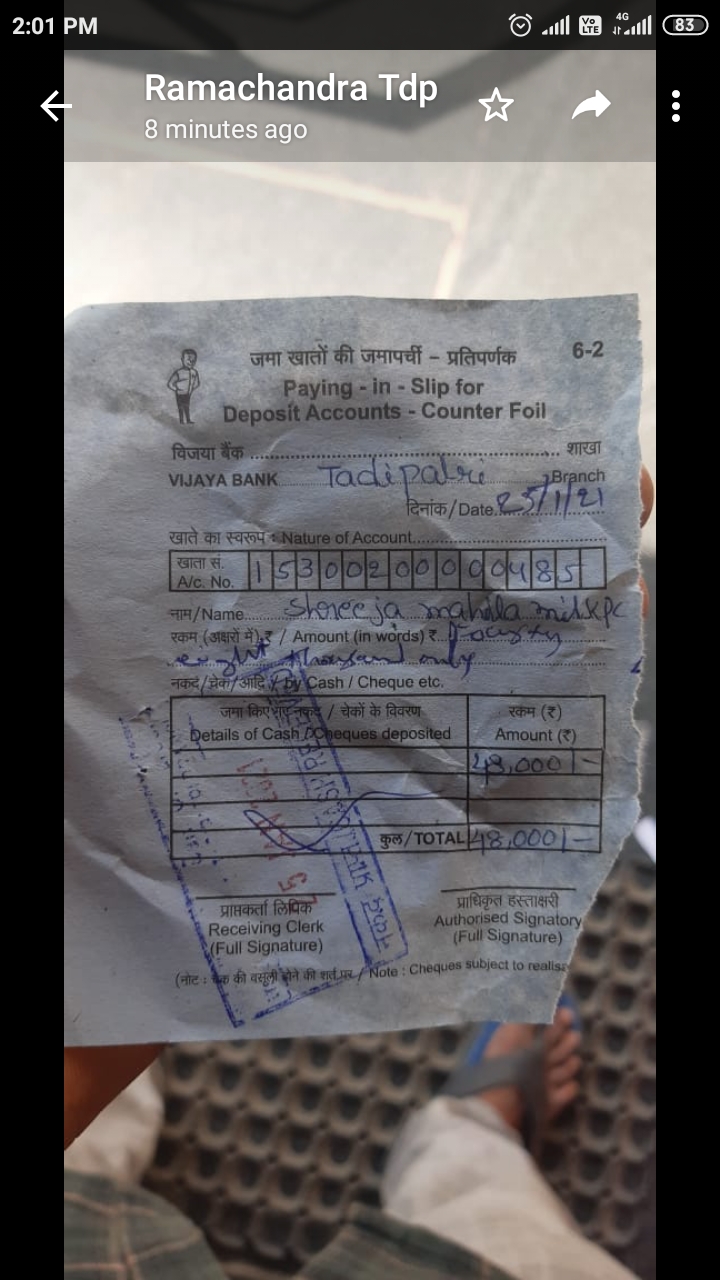 2:01 PM
Vo LTE
4G
83
Ramachandra Tdp
8 minutes ago
6-2
जमा खातों की जमापर्ची – प्रतिपर्णक
Paying - in - Slip for
Deposit Accounts - Counter Foil
विजया बैंक शाखा
VIJAYA BANK Tadipatri Branch
दिनांक/Date 25/1/21
खाते का स्वरूप : Nature of Account
खाता सं.
A/c. No. 153002000000485
नाम/Name Shreeja mahila milk pc
रकम (अक्षरों में) ₹ / Amount (in words) ₹ Fourty
eight thousand only
नकद/चेक/आदि / by Cash / Cheque etc.
जमा किए गए नकद / चेकों के विवरण रकम (₹)
Details of Cash / Cheques deposited Amount (₹)
48,000/-
कुल/TOTAL 48,000/-
प्राप्तकर्ता लिपिक
Receiving Clerk
(Full Signature)
प्राधिकृत हस्ताक्षरी
Authorised Signatory
(Full Signature)
(नोट : चेक की वसूली होने की शर्त पर / Note : Cheques subject to realis